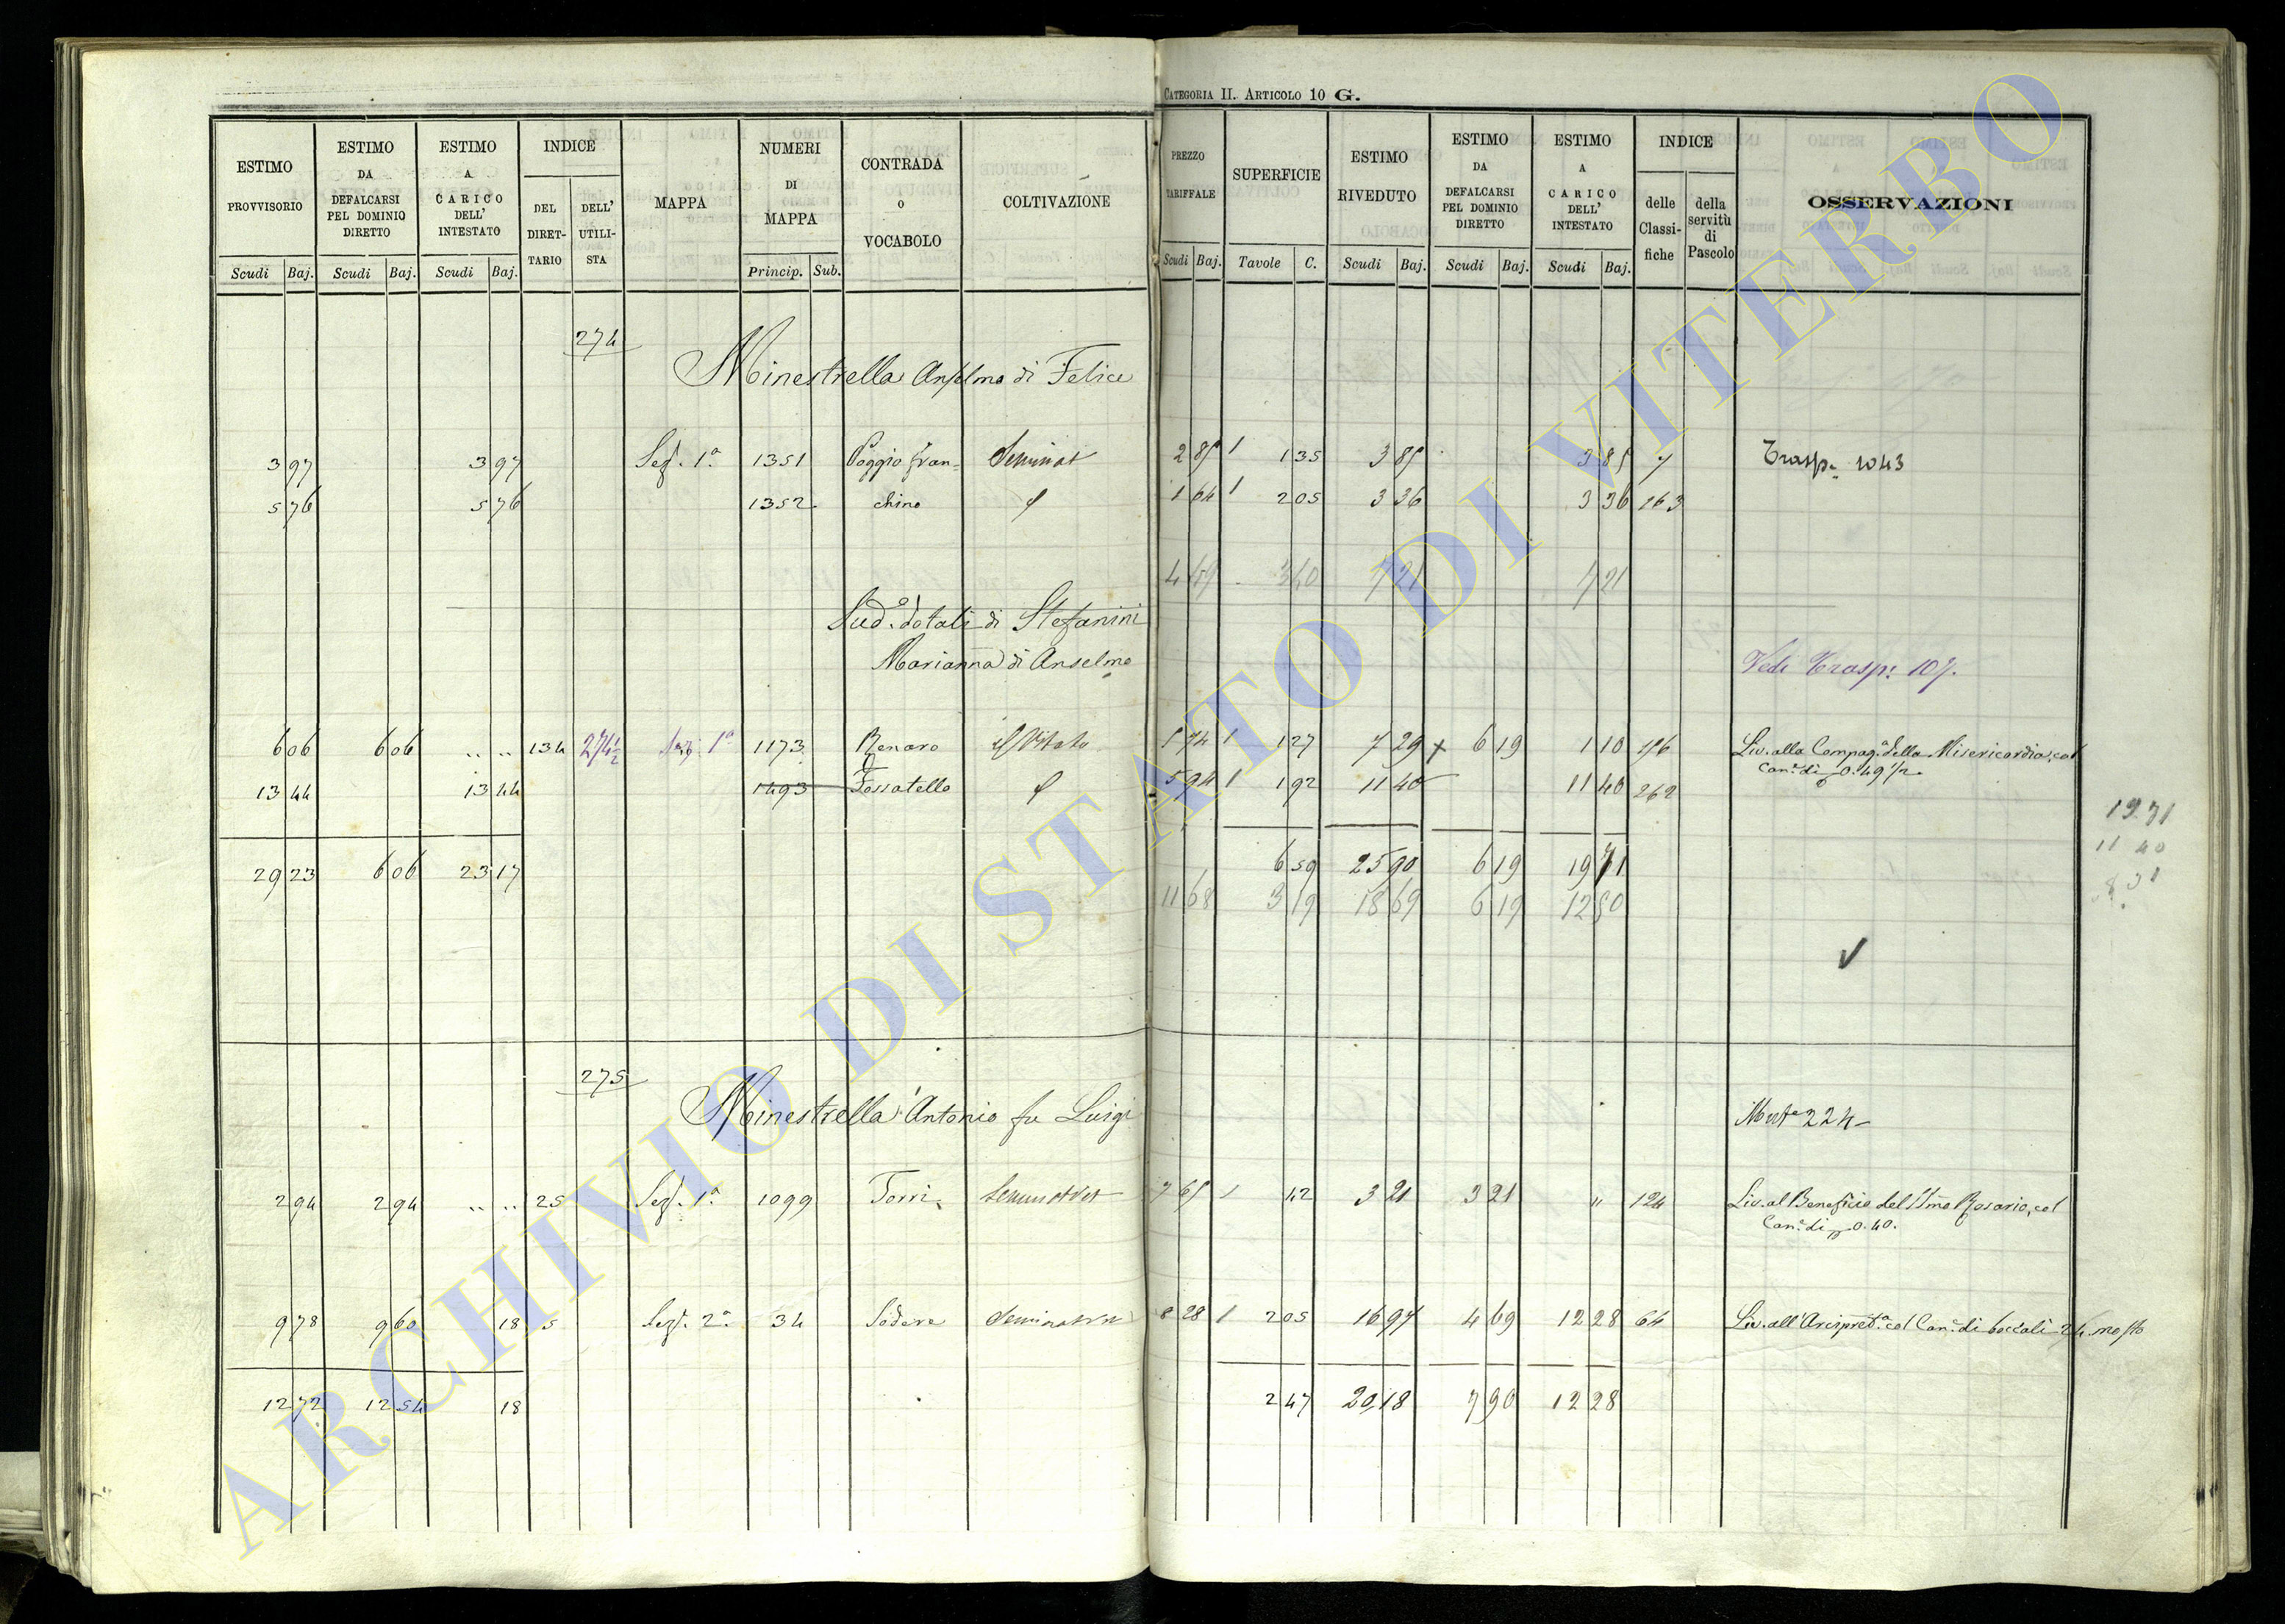 CATEGORIA II. ARTICOLO 10 G.
ESTIMO PROVVISORIO Scudi Baj.
ESTIMO DA DEFALCARSI PEL DOMINIO DIRETTO Scudi Baj.
ESTIMO A CARICO DELL' INTESTATO Scudi Baj.
INDICE DEL DIRET-TARIO DELL' UTILI-STA
MAPPA
NUMERI DI MAPPA Princip. Sub.
CONTRADA o VOCABOLO
COLTIVAZIONE
PREZZO TARIFFALE Scudi Baj.
SUPERFICIE Tavole C.
ESTIMO RIVEDUTO Scudi Baj.
ESTIMO DA DEFALCARSI PEL DOMINIO DIRETTO Scudi Baj.
ESTIMO A CARICO DELL' INTESTATO Scudi Baj.
INDICE delle Classi-fiche della servitù di Pascolo
OSSERVAZIONI
274
Minestrella Anselmo di Felice
3 97 3 97 Sez. 1ª 1351 Poggio fran= Seminat 2 85 1 1 35 3 85 3 85 7 Trasp. 1043
5 76 5 76 1352 chino 1 64 1 2 05 3 36 3 36 263
4 49 3 40 7 21 7 21
Sud.º dotali di Stefanini
Marianna di Anselmo
Vedi Trasp: 107.
6 06 6 06 " " 134 274 1/2 Sez. 1ª 1173 Renaro Vitato 5 74 1 1 27 7 29 6 19 1 10 276 Liv. alla Compag.ª della Misericordia, col
Can.e di 0.49 1/2
13 44 13 44 1493 Fossatello 5 94 1 1 92 11 40 11 40 262
19.71
11 40
8 31
29 23 6 06 23 17 6 59 25 90 6 19 19 71
11 68 3 19 18 69 6 19 12 50
275
Minestrella Antonio fu Luigi
Mut.e 224
2 94 2 94 " " 25 Sez. 1ª 1099 Torri 7 65 1 42 3 21 3 21 " 124 Liv. al Beneficio del SSmo Rosario, col
Can.e di 0.40.
9 78 9 60 18 5 Sez. 2ª 34 Sodere 8 28 1 2 05 16 97 4 69 12 28 64 Liv. all'Arcipret.ª col Can.e di boccali 24 mosto
12 72 12 54 18 2 47 20 18 7 90 12 28
ARCHIVIO DI STATO DI VITERBO